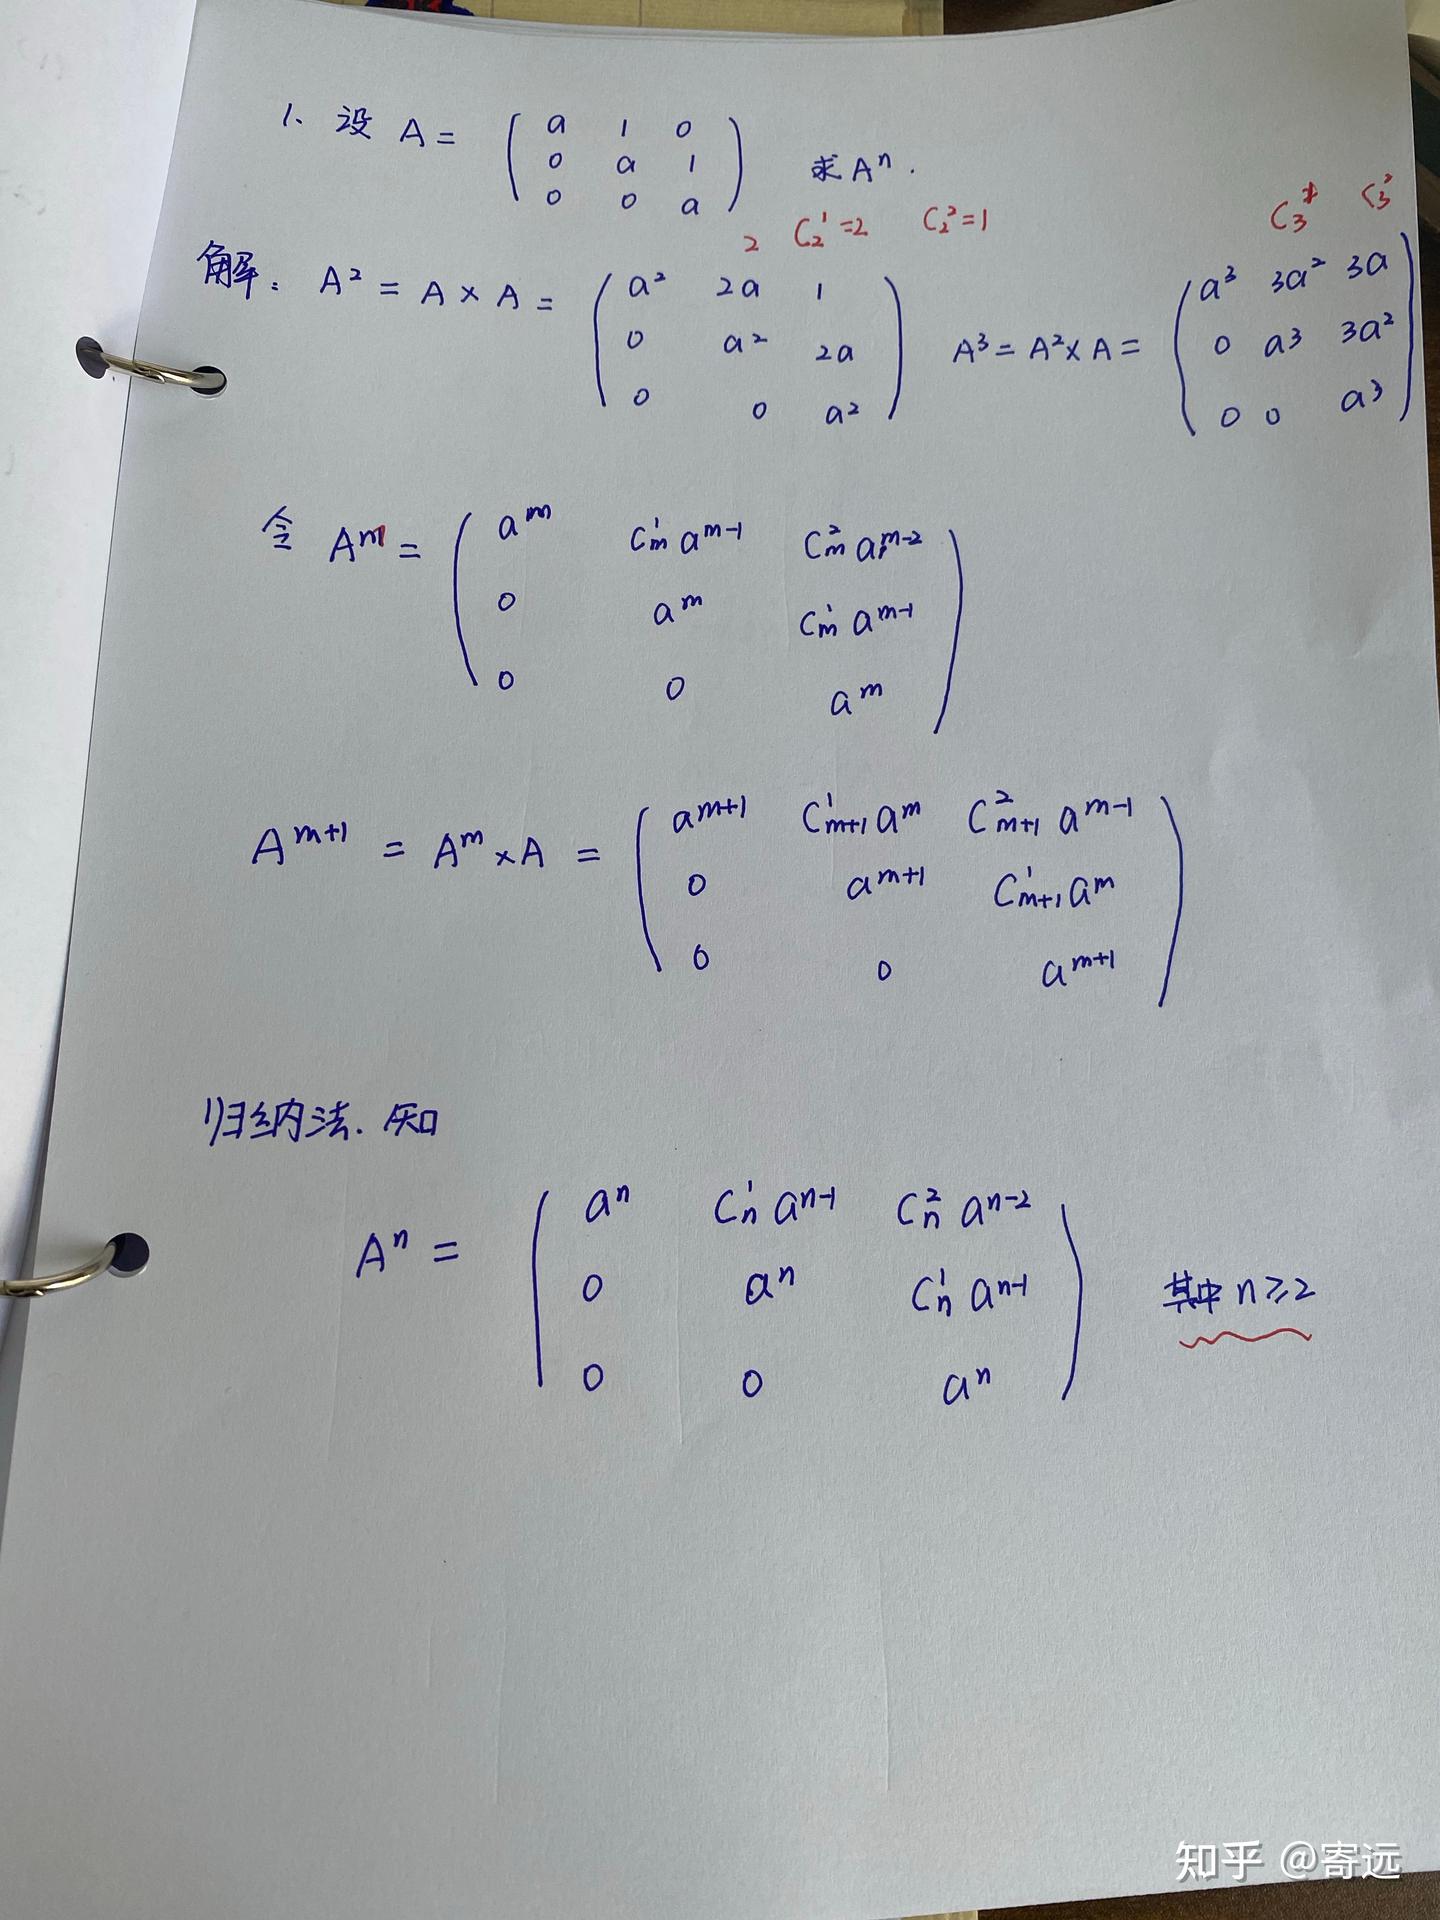 1、设 A = ( a 1 0
0 a 1
0 0 a ) 求 Aⁿ.
2 C₂¹=2 C₂²=1 C₃ C₃²
解: A² = A × A = ( a² 2a 1
0 a² 2a
0 0 a² ) A³ = A² × A = ( a³ 3a² 3a
0 a³ 3a²
0 0 a³ )
令 Aᵐ = ( aᵐ Cₘ¹ aᵐ⁻¹ Cₘ² aᵐ⁻²
0 aᵐ Cₘ¹ aᵐ⁻¹
0 0 aᵐ )
Aᵐ⁺¹ = Aᵐ × A = ( aᵐ⁺¹ Cₘ₊₁¹ aᵐ Cₘ₊₁² aᵐ⁻¹
0 aᵐ⁺¹ Cₘ₊₁¹ aᵐ
0 0 aᵐ⁺¹ )
归纳法. 知
Aⁿ = ( aⁿ Cₙ¹ aⁿ⁻¹ Cₙ² aⁿ⁻²
0 aⁿ Cₙ¹ aⁿ⁻¹
0 0 aⁿ ) 其中 n ≥ 2
知乎 @寄远